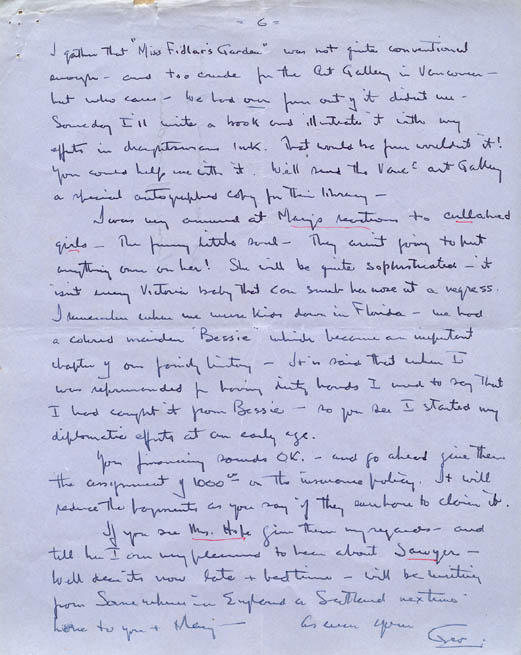 - 6 -
I gather that "Miss Fidlar's Garden" was not quite conventional
enough - and too crude for the Art Gallery in Vancouver -
but who cares - We had our fun out of it didn't we -
Someday I'll write a book and illustrate it with my
efforts in draughtsmans ink. That would be fun wouldn't it!
You could help me with it. We'll send the Vanc art Gallery
a special autographed copy for their library -
I was very amused at Mary's reactions to cullahed
girls - The funny little soul - They aint going to put
anything over on her! She will be quite sophisticated - it
isnt every Victoria baby that can snub her nose at a negress.
I remember when we were kids down in Florida - we had
a colored maiden 'Bessie' which became an important
chapter of our family history - It is said that when I
was reprimanded for having dirty hands I used to say that
I had caught it from Bessie - so you see I started my
diplomatic efforts at an early age.
Your financing sounds OK. - and go ahead give them
the assignment of 1000 on the insurance policy. It will
reduce the payments as you say if they ever have to claim it.
If you see Mrs. Hope give them my regards - and
tell her I am very pleased to hear about Sawyer -
Well dear its now late + bedtime - will be writing
from Somewhere in England or Scotland next time
love to you + Mary - as ever your
Geo.